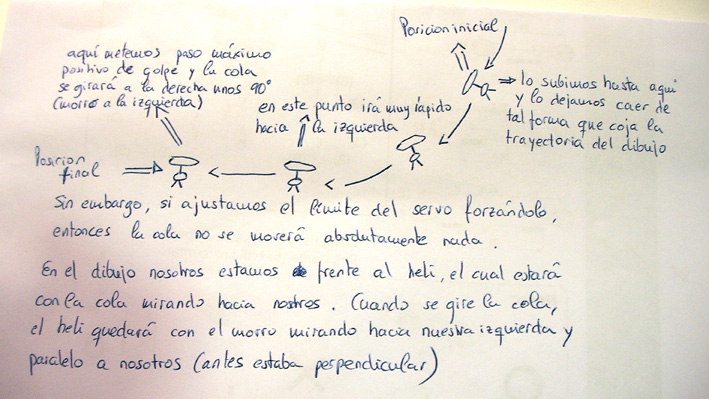 Posicion inicial
aquí metemos paso máximo
positivo de golpe y la cola
se girará a la derecha unos 90°
(morro a la izquierda)
en este punto irá muy rápido
hacia la izquierda
lo subimos hasta aquí
y lo dejamos caer de
tal forma que coja la
trayectoria del dibujo
Posicion
final
Sin embargo, si ajustamos el límite del servo forzándolo,
entonces la cola no se moverá absolutamente nada.
En el dibujo nosotros estamos frente al heli, el cual estará
con la cola mirando hacia nostros. Cuando se gire la cola,
el heli quedará con el morro mirando hacia nuestra izquierda y
paralelo a nosotros (antes estaba perpendicular)